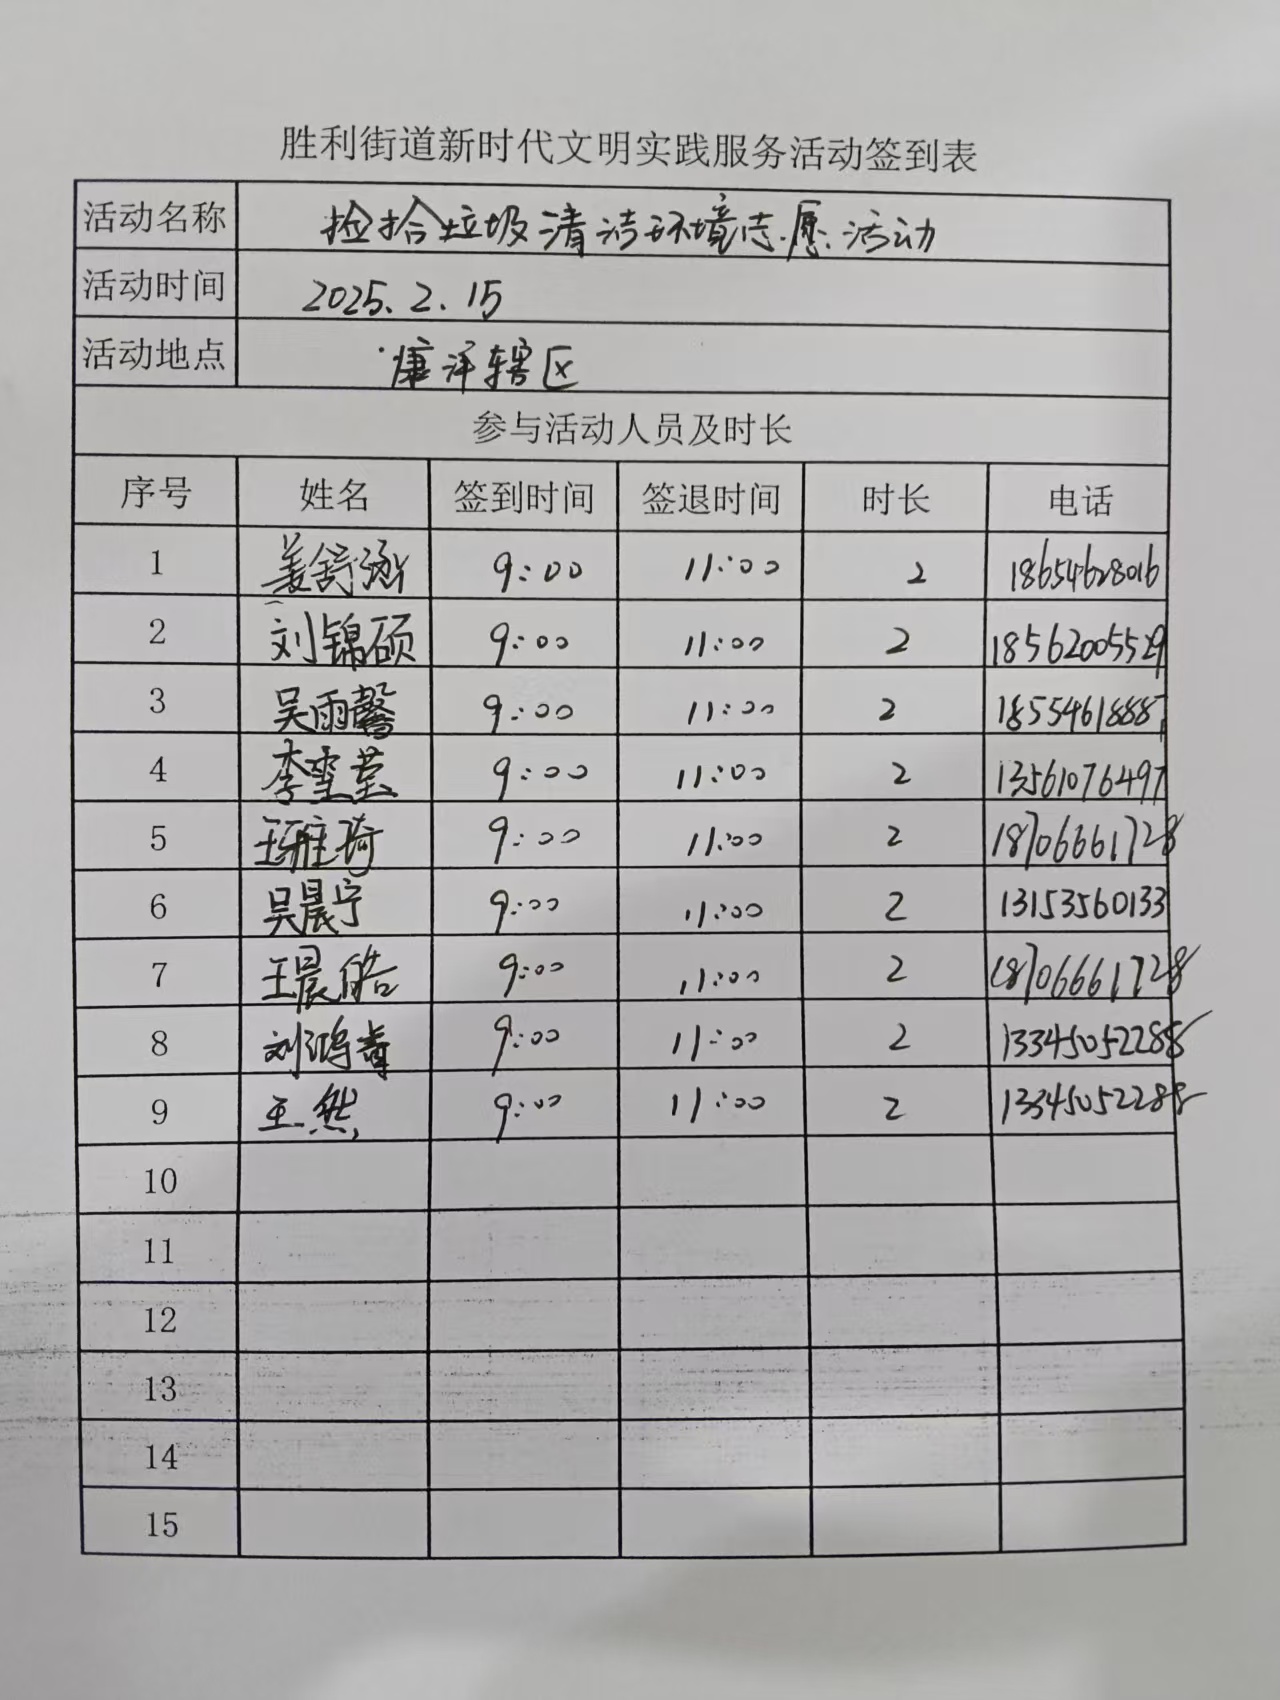 胜利街道新时代文明实践服务活动签到表
活动名称 捡拾垃圾清洁环境志愿活动
活动时间 2025.2.15
活动地点 康洋辖区
参与活动人员及时长
序号 姓名 签到时间 签退时间 时长 电话
1 姜舒涵 9:00 11:00 2 18654628016
2 刘锦硕 9:00 11:00 2 18562005529
3 吴雨馨 9:00 11:00 2 18554618887
4 李雪莹 9:00 11:00 2 13561076497
5 王雅琦 9:00 11:00 2 18706661728
6 吴晨宁 9:00 11:00 2 13153560133
7 王晨皓 9:00 11:00 2 18706661728
8 刘鸿睿 9:00 11:00 2 13345052288
9 王然 9:00 11:00 2 13345052288
10
11
12
13
14
15